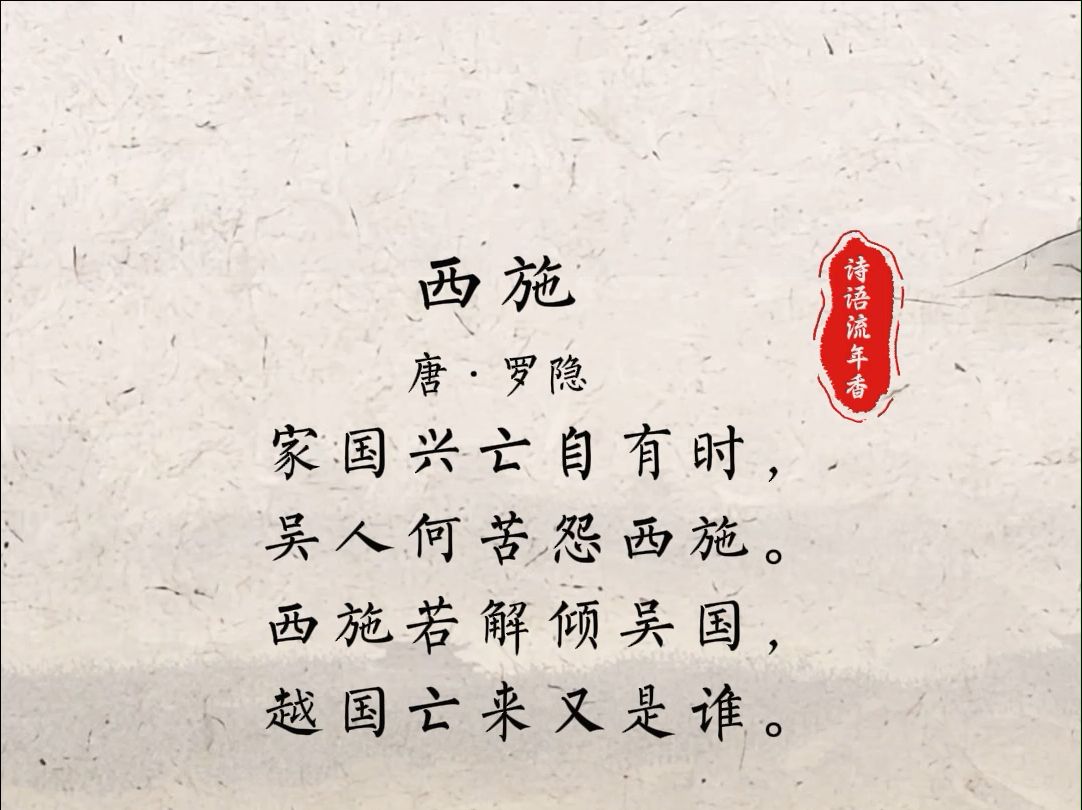 西施
唐·罗隐
家国兴亡自有时，
吴人何苦怨西施。
西施若解倾吴国，
越国亡来又是谁。
诗语流年香